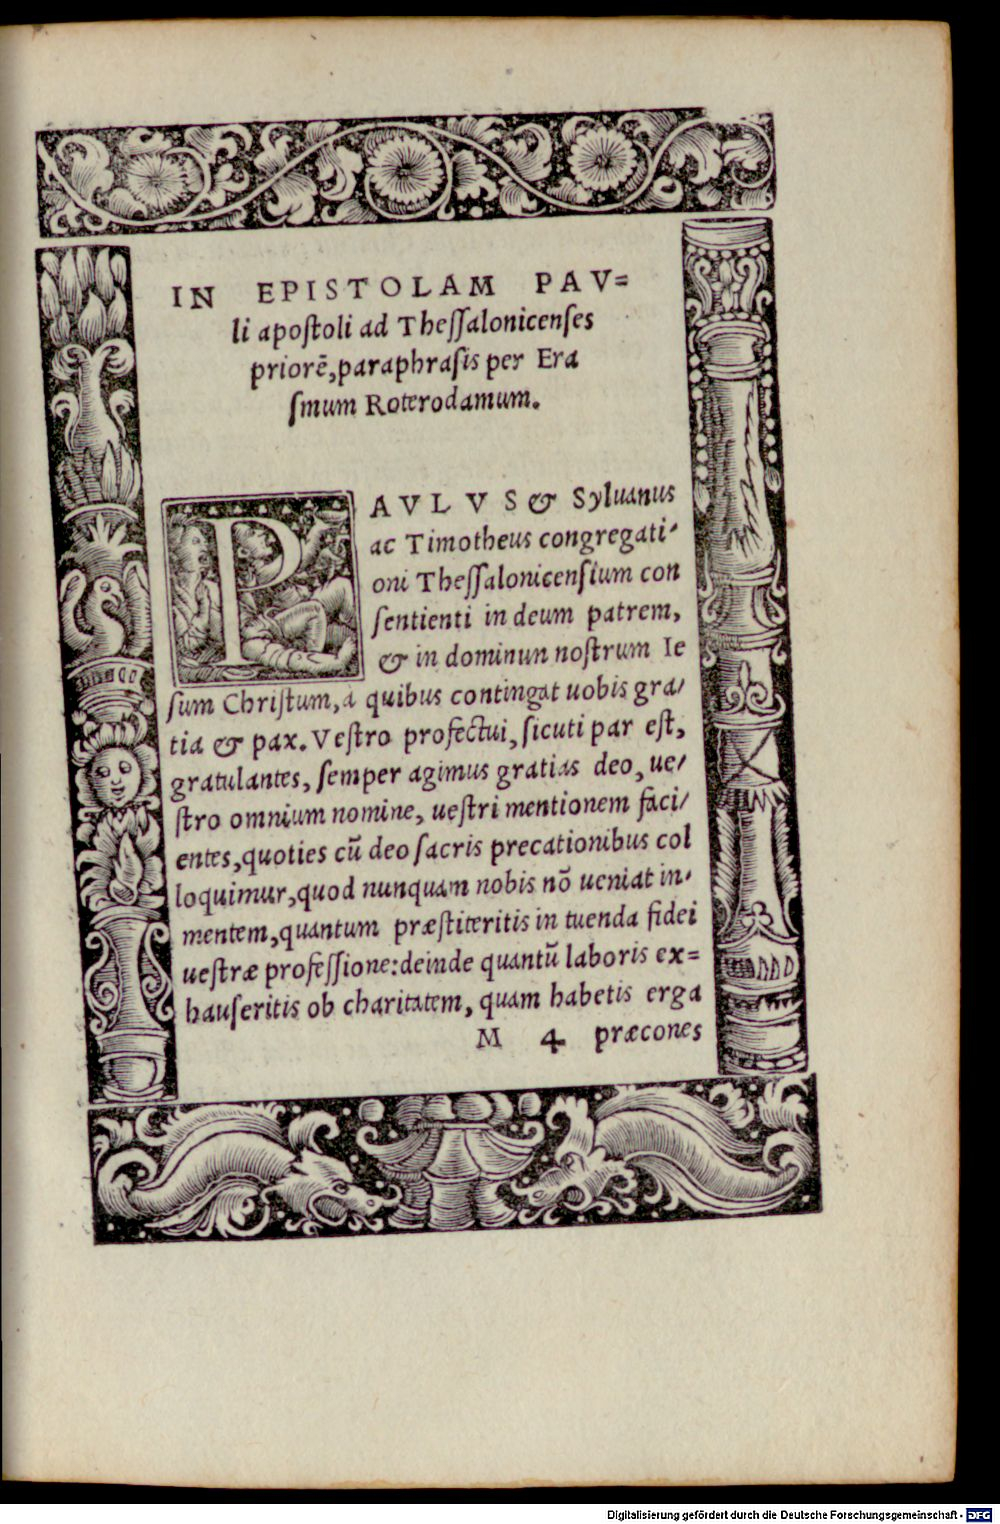 IN EPISTOLAM PAV=
li apoſtoli ad Theſſalonicenſes
priorē, paraphraſis per Era
ſmum Roterodamum.
PAVLVS & Syluanus
ac Timotheus congregati-
oni Theſſalonicenſium con
ſentienti in deum patrem,
& in dominun noſtrum Ie
ſum Chriſtum, a quibus contingat uobis gra-
tia & pax. Veſtro profectui, ſicuti par eſt,
gratulantes, ſemper agimus gratias deo, ue-
ſtro omnium nomine, ueſtri mentionem faci-
entes, quoties cū deo ſacris precationibus col
loquimur, quod nunquam nobis nō ueniat in-
mentem, quantum præſtiteritis in tuenda fidei
ueſtræ profeſſione: deinde quantū laboris ex=
hauſeritis ob charitatem, quam habetis erga
M 4 præcones
Digitalisierung gefördert durch die Deutsche Forschungsgemeinschaft - DFG